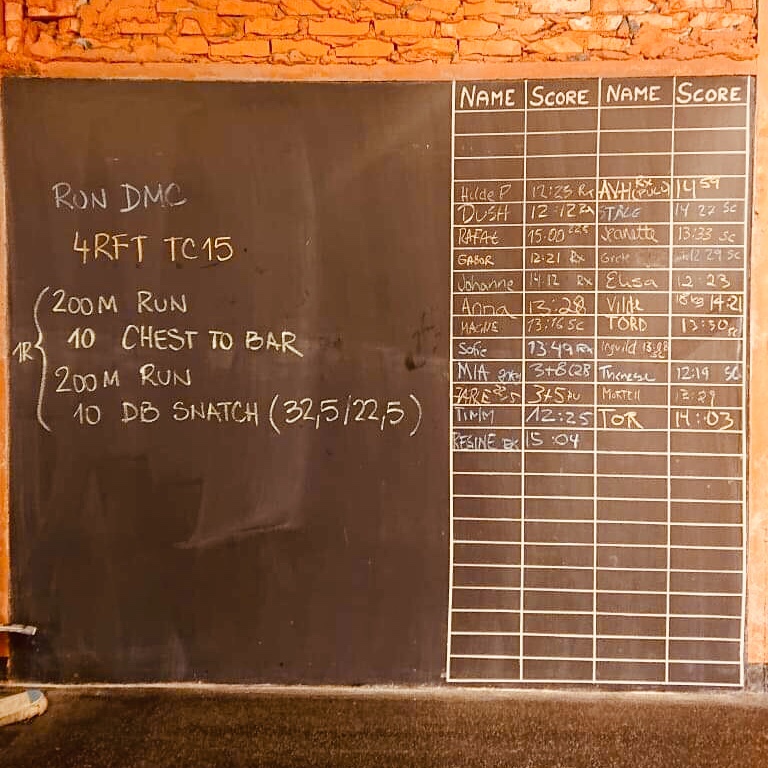 NAME SCORE NAME SCORE
RUN DMC
4RFT TC15
1R
200M RUN
10 CHEST TO BAR
200M RUN
10 DB SNATCH (32,5/22,5)
Hilde P 12:23 Rx AVH 14 59
DUSH 12:12 Rx STÅLE 14:22 SC
RAFAŁ 15:00 Jeanette 13:33 SC
GABOR 12:21 Rx Grete 29 SC
Johanne 14:12 Rx Elisa 12:23
Anna 13:28 Vilde 14:21
MAGNE 13:16 SC TORD 13:50
Sofie 13:49 Rx Ingvild
MIA 3+8 Therese 12:19 SC
3+5 MORTEN
TIMM 12:25 TOR 14:03
RESINE 15:04